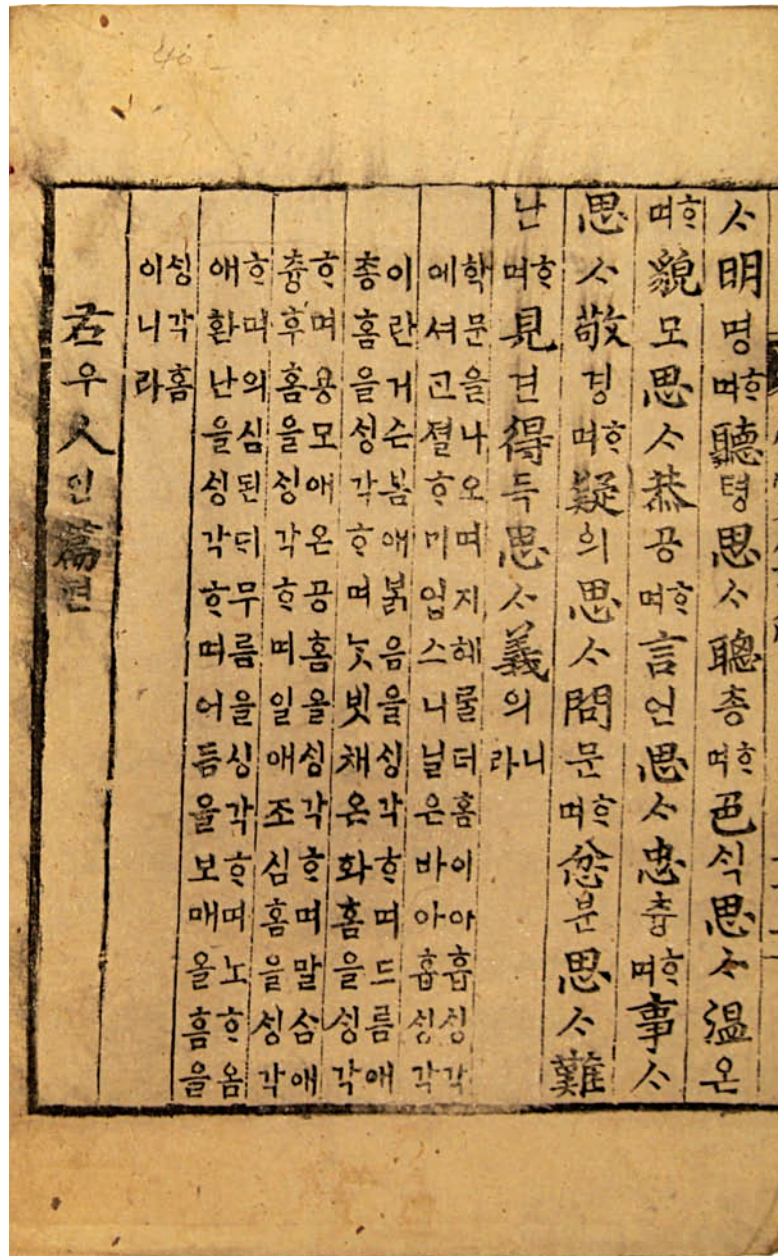 ᄉᆞ明명ᄒᆞ며聽텽思ᄉᆞ聰총ᄒᆞ며色ᄉᆡᆨ思ᄉᆞ溫온
ᄒᆞ며貌모思ᄉᆞ恭공ᄒᆞ며言언思ᄉᆞ忠츙ᄒᆞ며事ᄉᆞ
思ᄉᆞ敬경ᄒᆞ며疑의思ᄉᆞ問문ᄒᆞ며忿분思ᄉᆞ難
난ᄒᆞ며見견得득思ᄉᆞ義의니라
학문을나오며지혜ᄅᆞᆯ더홈이아홉ᄉᆡᆼ각
예셔ᄀᆞᆫ졀ᄒᆞ미업스니닐은바아홉ᄉᆡᆼ각
이란거슨봄애ᄇᆞᆰ음을ᄉᆡᆼ각ᄒᆞ며드름애
총홈을ᄉᆡᆼ각ᄒᆞ며ᄂᆞᆺ빗채온화홈을ᄉᆡᆼ각
ᄒᆞ며용모애온공홈을ᄉᆡᆼ각ᄒᆞ며말ᄉᆞᆷ애
츙후홈을ᄉᆡᆼ각ᄒᆞ며일애조심홈을ᄉᆡᆼ각
ᄒᆞ며의심된ᄃᆡ무름을ᄉᆡᆼ각ᄒᆞ며노ᄒᆞ옴
애환난을ᄉᆡᆼ각ᄒᆞ며어듬을보매올흠을
ᄉᆡᆼ각홈
이니라
右우人인篇편